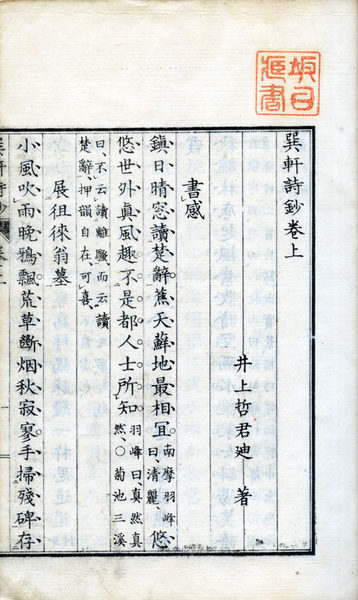 巽軒詩鈔卷上
井上哲君廸 著
書感
鎭日晴窓讀楚辭蕉天蘚地最相宜南摩羽峰曰、清麗、悠
悠世外眞風趣不是都人士所知羽峰曰眞然眞然、〇菊池三溪
曰、不云讀離騷而云讀
楚辭、押韻自在、可喜、
展徂徠翁墓
小風吹雨晚鴉飄荒草斷烟秋寂寥手掃殘碑存